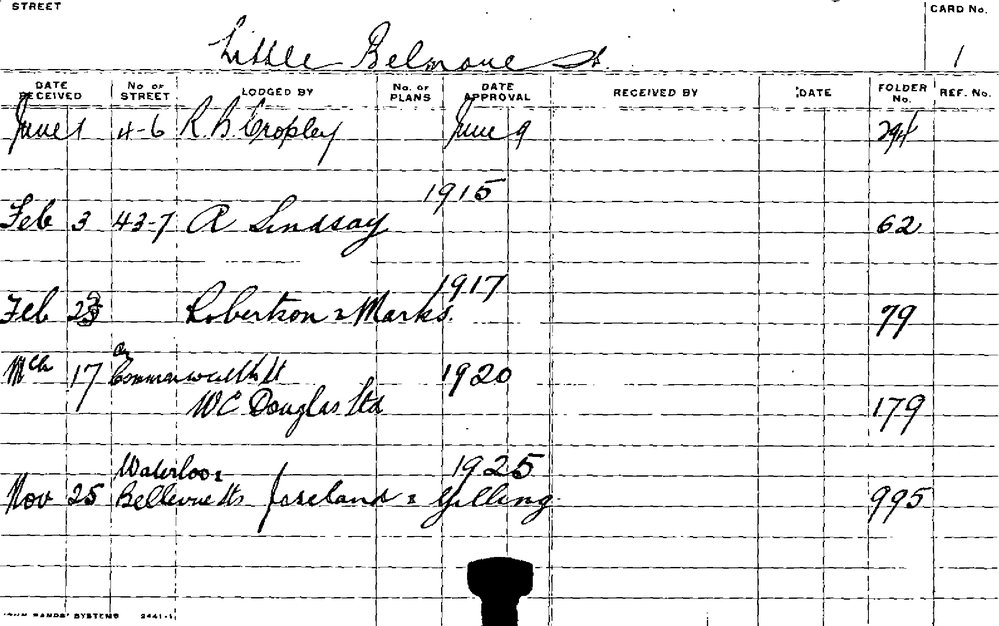 STREET
CARD No.
Little Belmore St.
1
DATE RECEIVED No OF STREET LODGED BY No. OF PLANS DATE APPROVAL RECEIVED BY DATE FOLDER No. REF. No.
June 1 4-6 R B Cropley June 9 294
1915
Feb 3 43-7 A Lindsay 62
1917
Feb Robertson & Marks. 79
Mch 17 Commonwealth St 1920
WC Douglas Ltd 179
Waterloo & 1925
Nov 25 Bellevue Sts Joseland & Gilling 995
SYSTEMS 2441-1